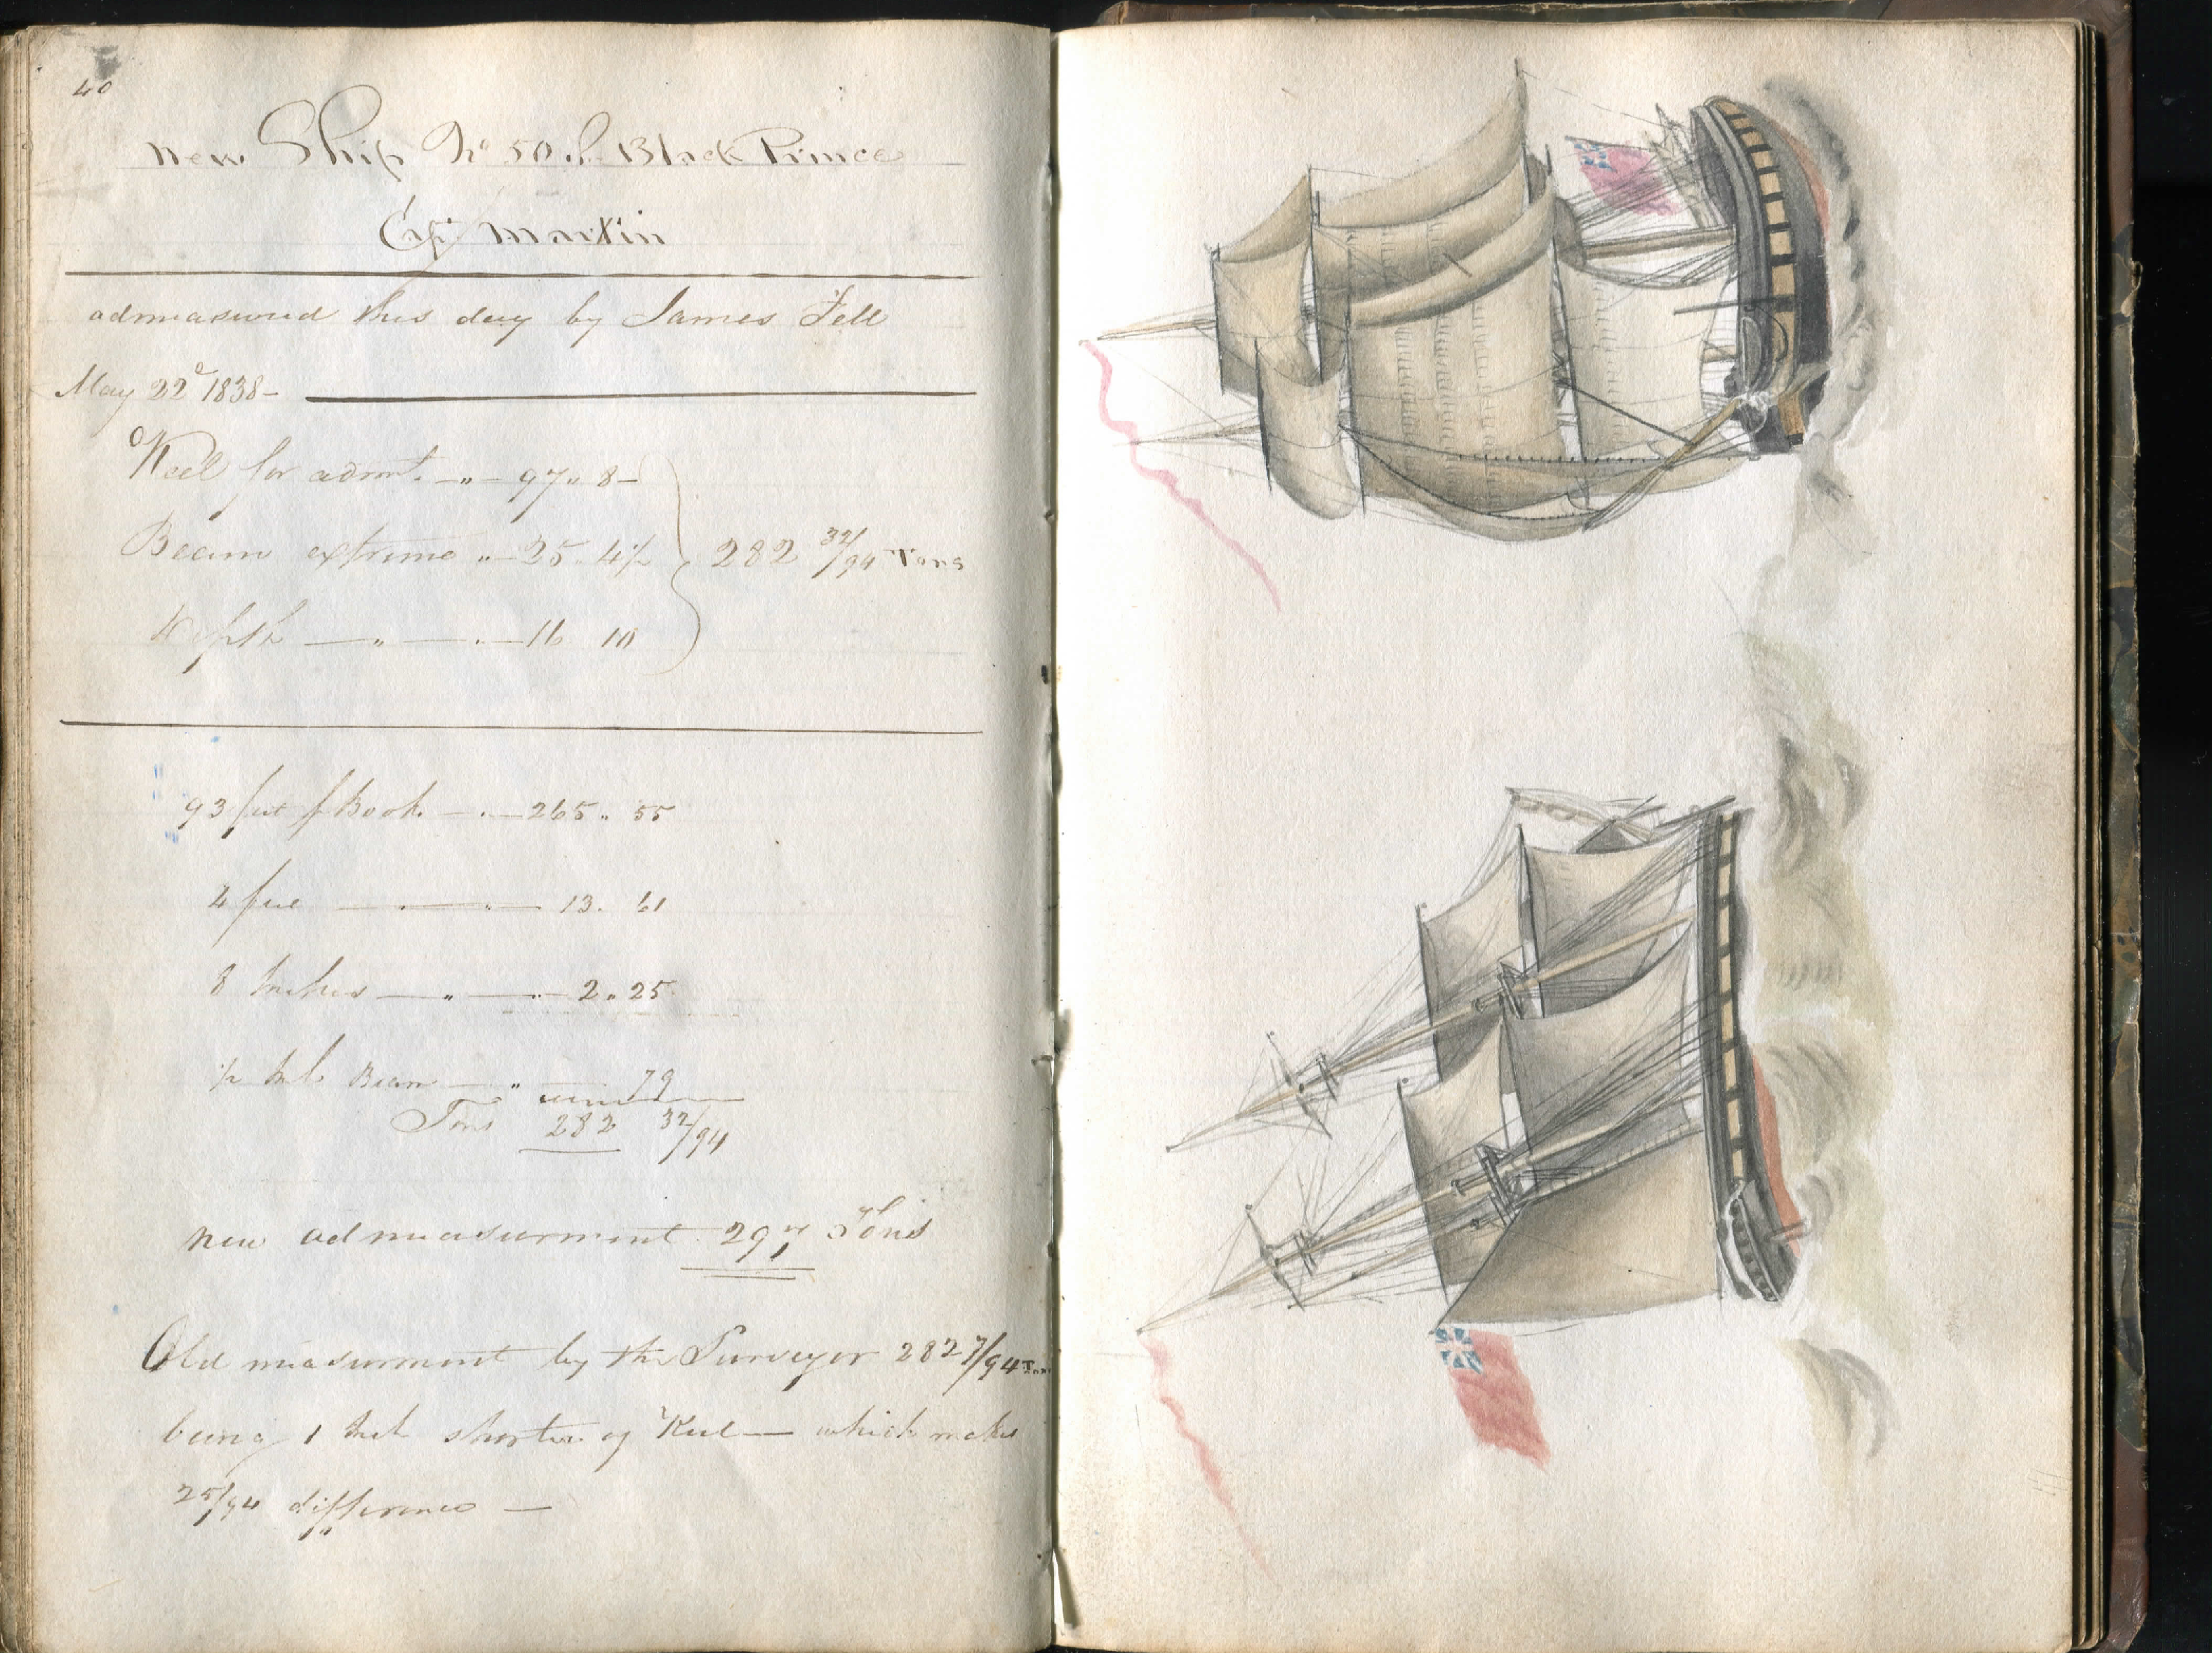 40
New Ship No 50 Black Prince
Capt Martin
admeasured this day by James Fell
May 22d 1838 —
Keel for admt. — " — 97 " 8 —
Beam extreme " — 25 . 4 1/2
282 32/94 Tons
Depth — " — . — 16 10
93 feet Book — . — 265 " 55
4 feet — . — " — 13 . 61
8 Inches — " — . — 2 " 25
1/2 Inch Beam — " — 79
Tons 282 32/94
New admeasurment 297 Tons
Old measurment by the Surveyor 282 7/94 Tons
being 1 Inch shorter of Keel — which makes
25/94 difference —